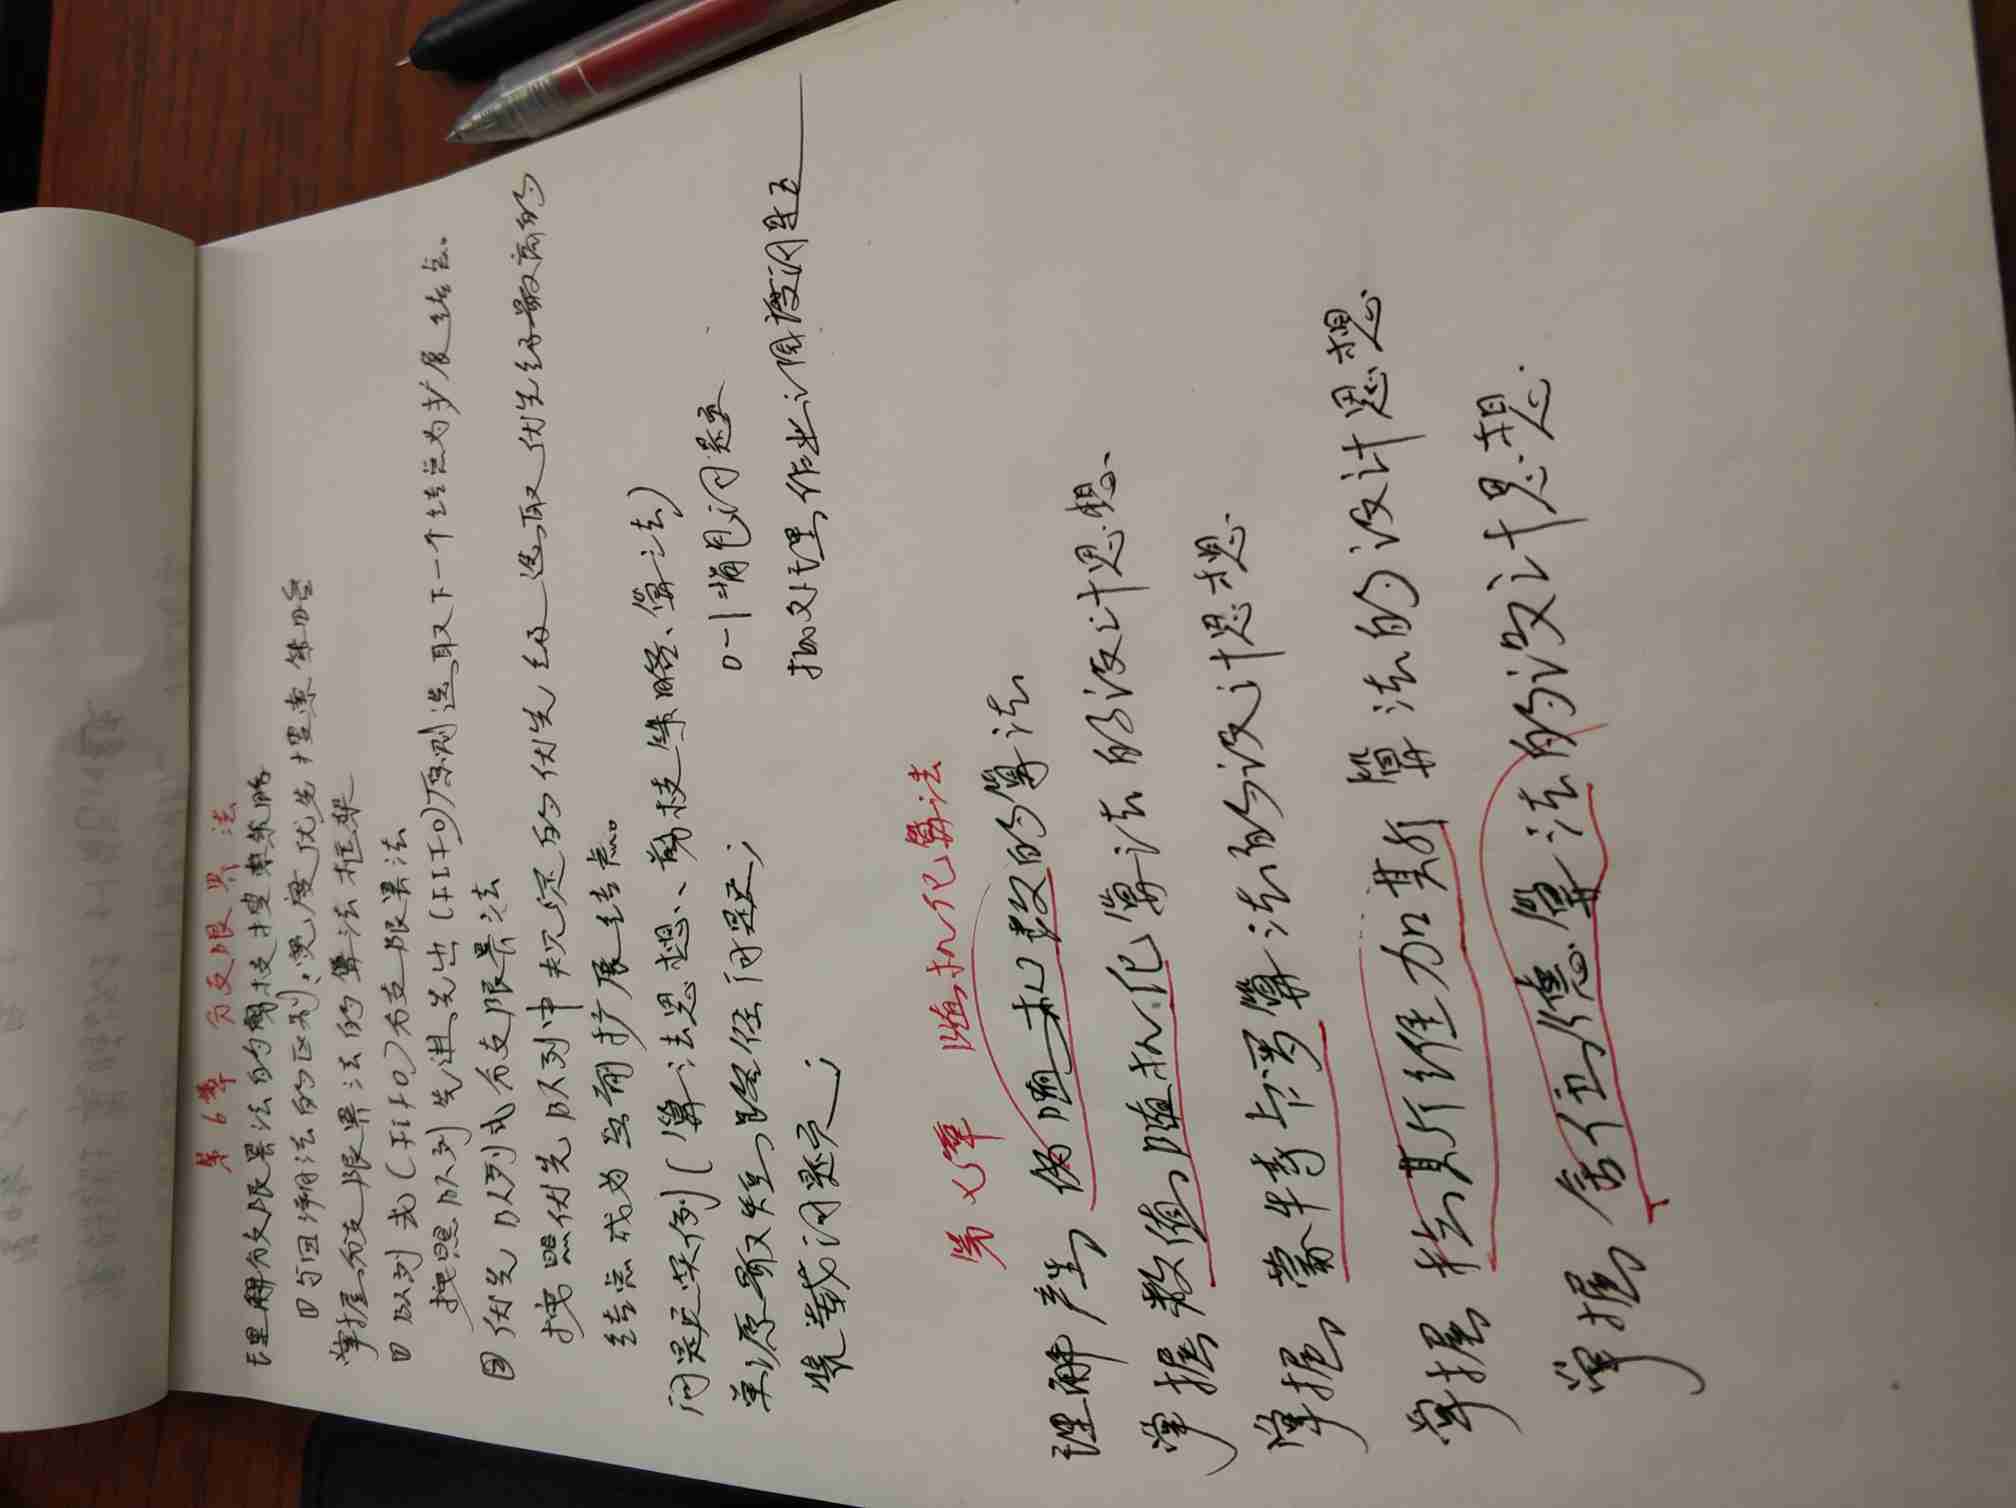 第6章 分支限界法
理解分支限界法的剪枝搜索策略
与回溯法的区别:宽度优先搜索策略
掌握分支限界法的算法框架
队列式(FIFO)分支限界法
按照队列先进先出(FIFO)原则选取下一个结点为扩展结点。
优先队列式分支限界法
按照优先队列中规定的优先级选取优先级最高的
结点成为当前扩展结点。
问题实例(算法思想、剪枝策略、算法)
单源最短路径问题; 0-1背包问题
装载问题; 批处理作业调度问题
第七章 随机化算法
理解产生伪随机数的算法
掌握数值随机化算法的设计思想.
掌握蒙特卡罗算法的设计思想.
掌握拉斯维加斯算法的设计思想.
掌握舍伍德算法的设计思想.